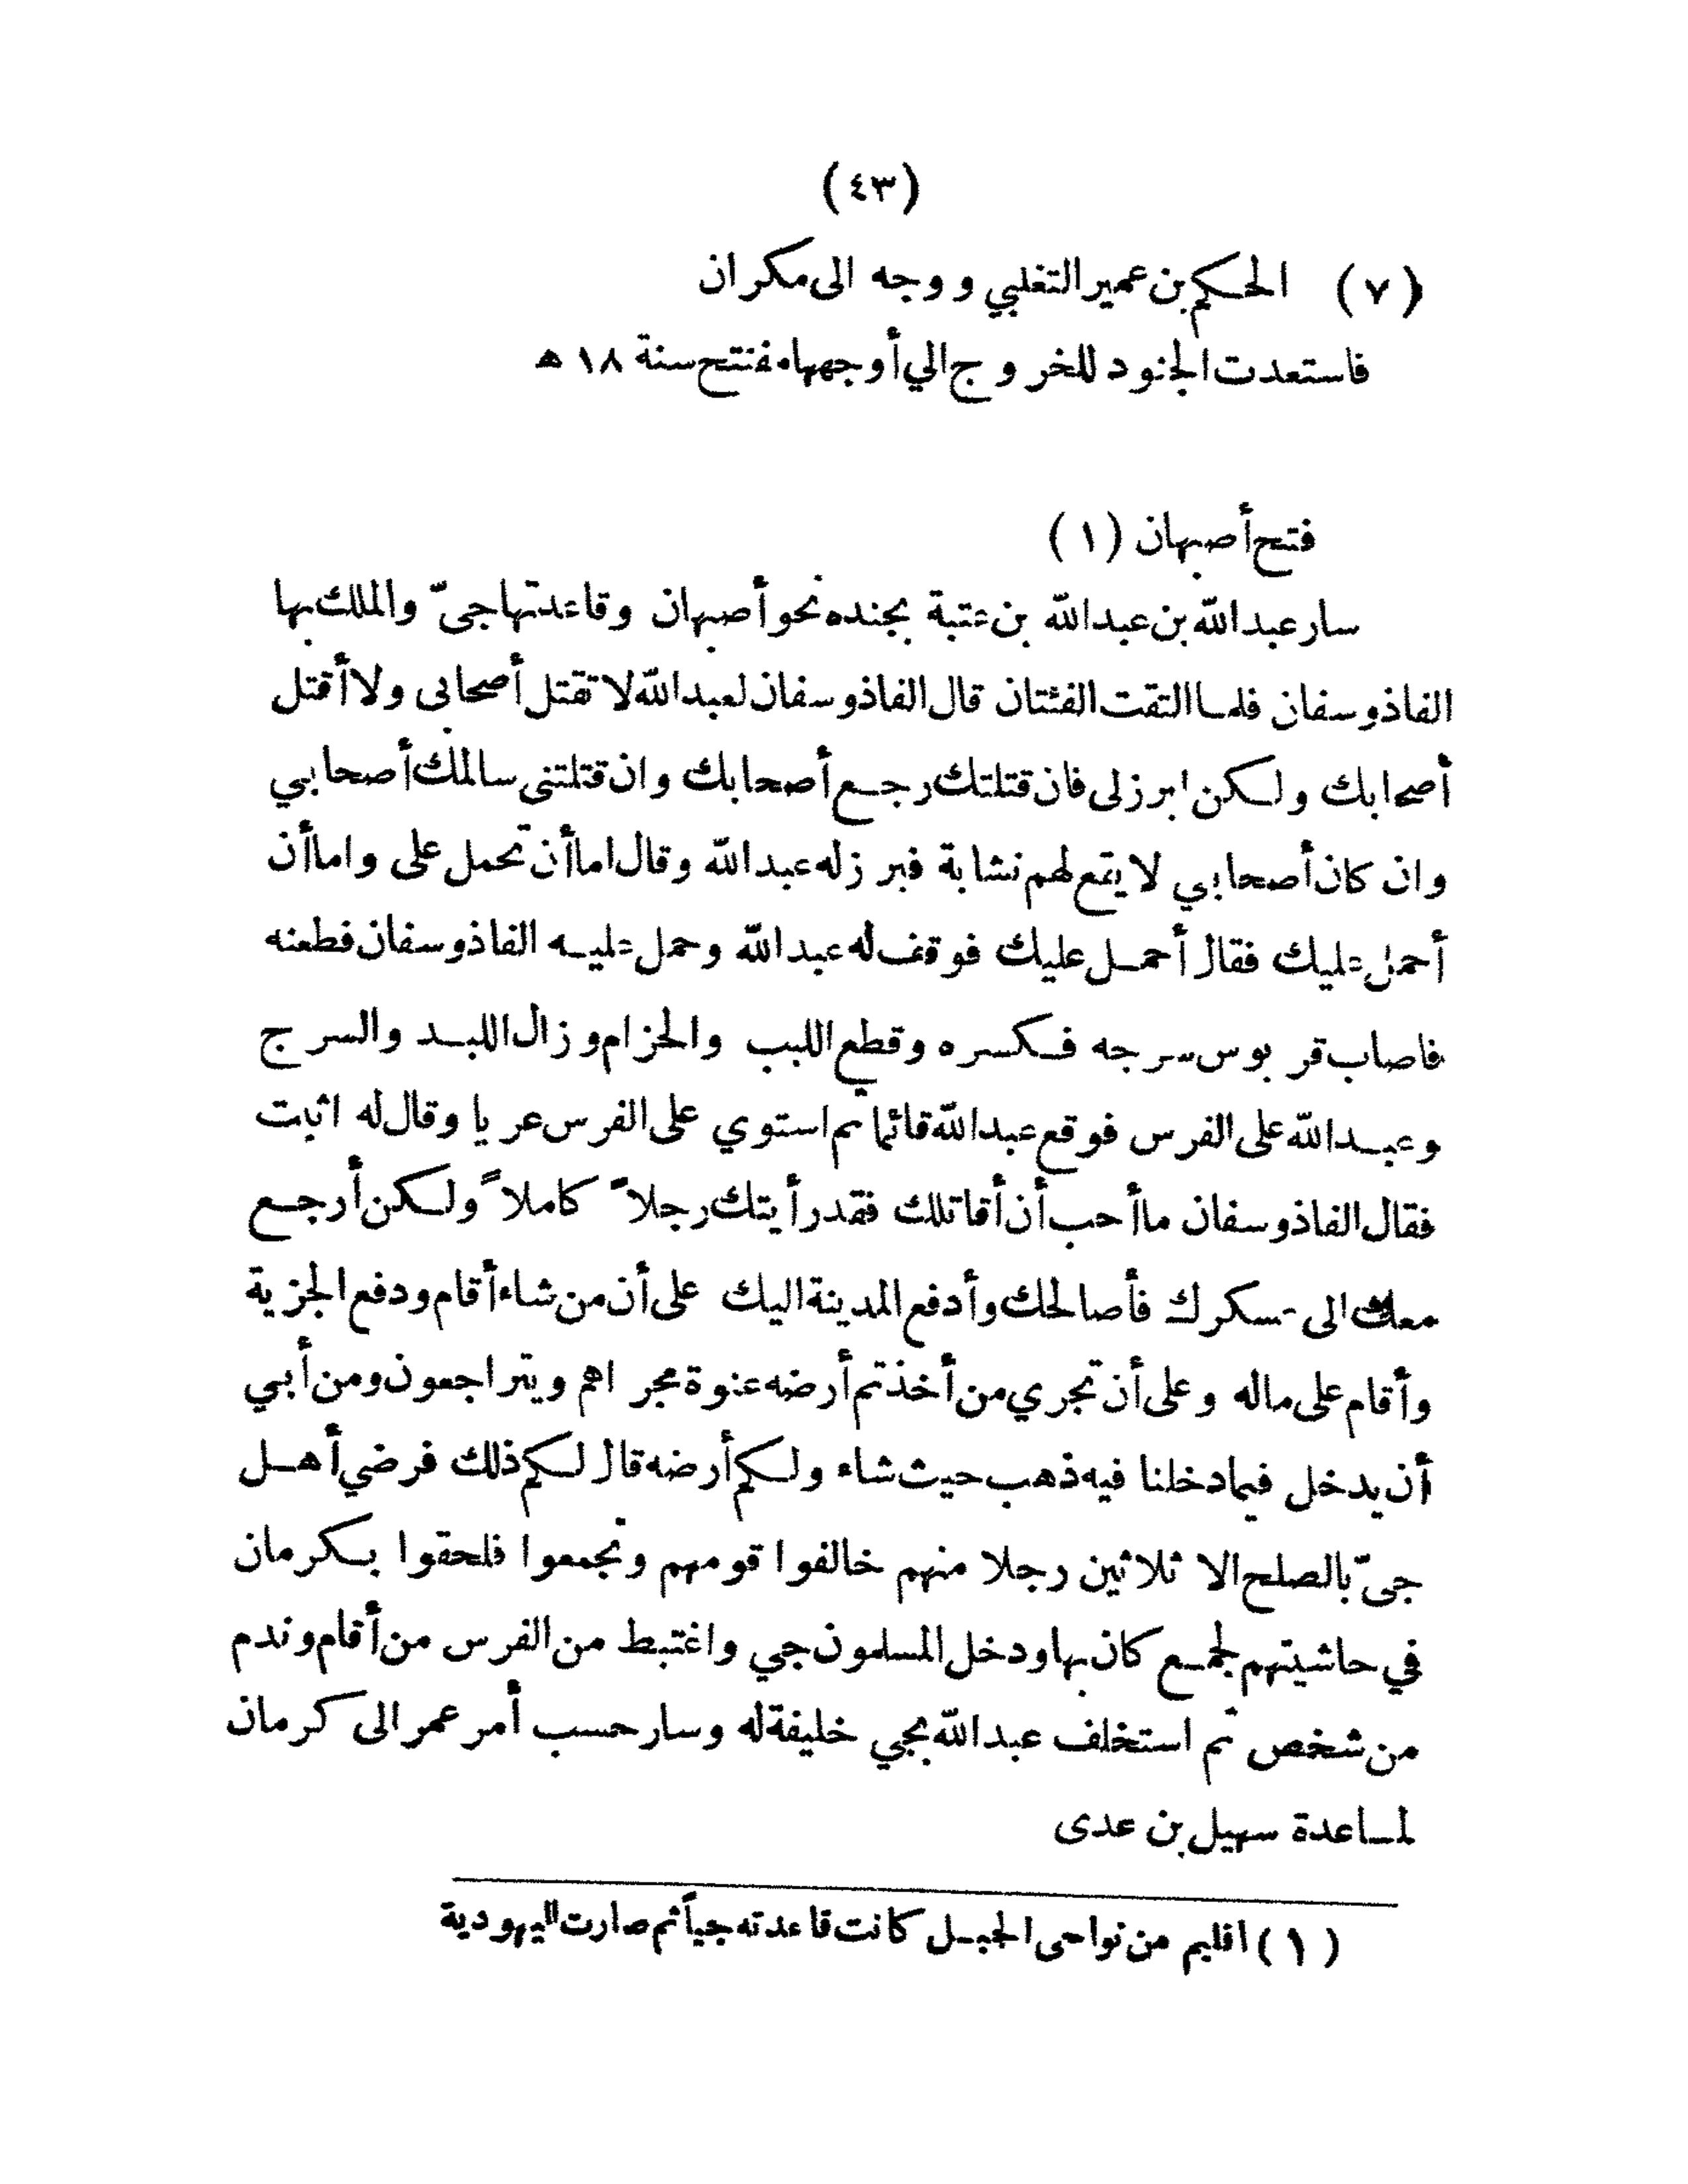 (٤٣)
(٧) الحكم بن عمير التغلبي ووجه الى مكران
فاستعدت الجنود للخروج الي أوجهها مفتتح سنة ١٨ هـ
فتح أصبهان (١)
سار عبد الله بن عبد الله بن عتبة بجنده نحو أصبهان وقاعدتها جىّ والملك بها
الفاذوسفان فلما التقت الفئتان قال الفاذوسفان لعبد الله لا تقتل أصحابى ولا أقتل
أصحابك ولكن ابرز لى فان قتلتك رجع أصحابك وان قتلتنى سالمك أصحابي
وان كان أصحابي لا يقع لهم نشابة فبرز له عبد الله وقال اما أن تحمل على واما أن
أحمل عليك فقال أحمل عليك فوقف له عبد الله وحمل عليه الفاذوسفان فطعنه
فاصاب قربوس سرجه فكسره وقطع اللبب والحزام وزال اللبد والسرج
وعبد الله على الفرس فوقع عبد الله قائما ثم استوي على الفرس عريا وقال له اثبت
فقال الفاذوسفان ما أحب أن أقاتلك فقد رأيتك رجلاً كاملاً ولكن أرجع
معك الى عسكرك فأصالحك وأدفع المدينة اليك على أن من شاء أقام ودفع الجزية
وأقام على ماله وعلى أن تجري من أخذتم أرضه عنوة مجراهم ويتراجعون ومن أبي
أن يدخل فيما دخلنا فيه ذهب حيث شاء ولكم أرضه قال لكم ذلك فرضي أهل
جىّ بالصلح الا ثلاثين رجلا منهم خالفوا قومهم وتجمعوا فلحقوا بكرمان
في حاشيتهم لجمع كان بها ودخل المسلمون جي واغتبط من الفرس من أقام وندم
من شخص ثم استخلف عبد الله بجي خليفة له وسار حسب أمر عمر الى كرمان
لمساعدة سهيل بن عدى
(١) اقليم من نواحى الجبل كانت قاعدته جياً ثم صارت اليهودية